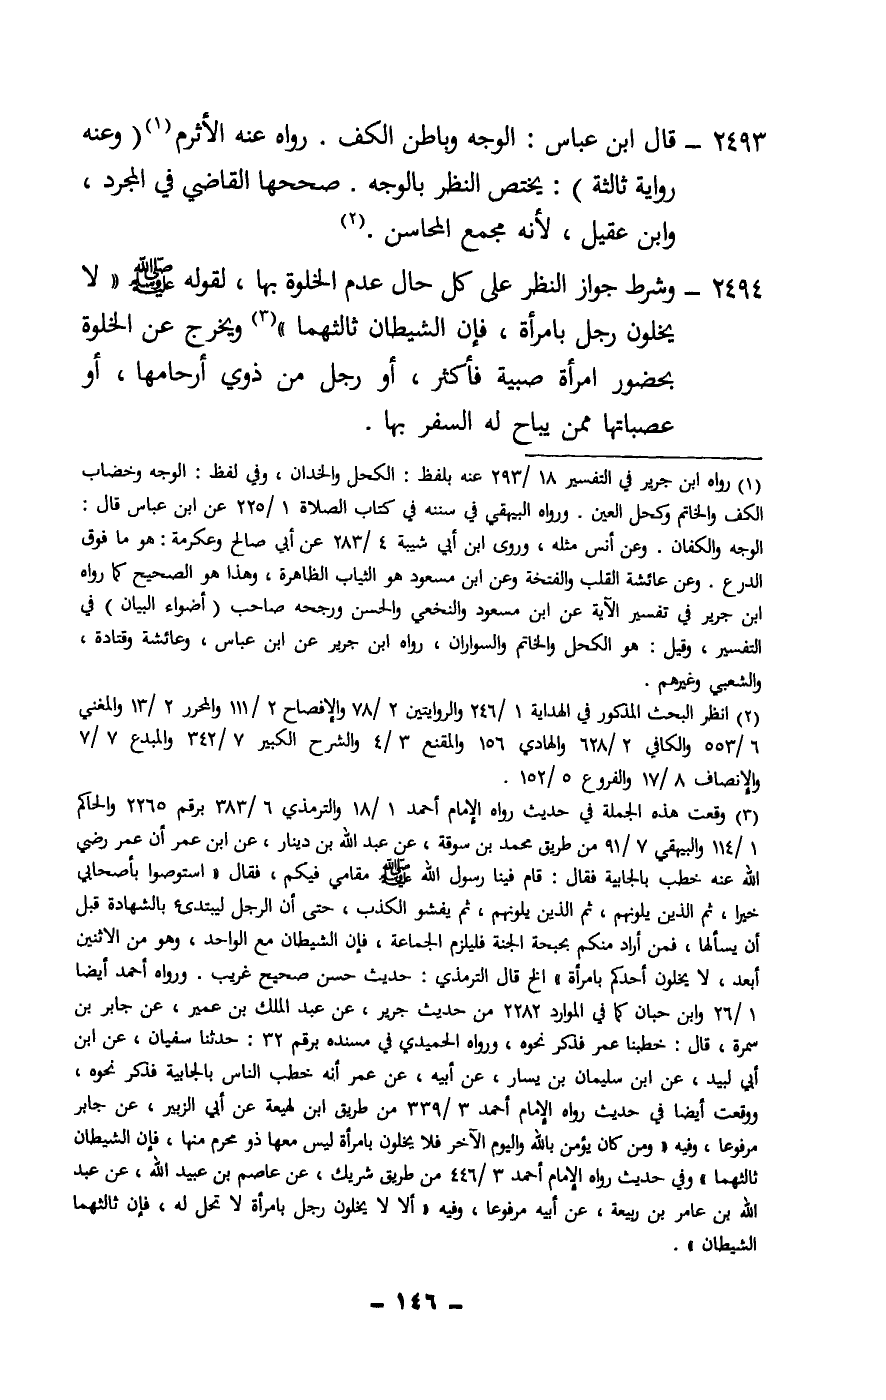 ٢٤٩٣ ــ قال ابن عباس : الوجه وباطن الكف . رواه عنه الأثرم(١) ( وعنه
رواية ثالثة ) : يختص النظر بالوجه . صححها القاضي في المجرد ،
وابن عقيل ، لأنه مجمع المحاسن .(٢)
٢٤٩٤ ــ وشرط جواز النظر على كل حال عدم الخلوة بها ، لقوله ﷺ « لا
يخلون رجل بامرأة ، فإن الشيطان ثالثهما »(٣) ويخرج عن الخلوة
بحضور امرأة صبية فأكثر ، أو رجل من ذوي أرحامها ، أو
عصباتها ممن يباح له السفر بها .
(١) رواه ابن جرير في التفسير ١٨ /٢٩٣ عنه بلفظ : الكحل والخدان ، وفي لفظ : الوجه وخضاب
الكف والخاتم وكحل العين . ورواه البيهقي في سننه في كتاب الصلاة ١ /٢٢٥ عن ابن عباس قال :
الوجه والكفان . وعن أنس مثله ، وروى ابن أبي شيبة ٤ /٢٨٣ عن أبي صالح وعكرمة : هو ما فوق
الدرع . وعن عائشة القلب والفتخة وعن ابن مسعود هو الثياب الظاهرة ، وهذا هو الصحيح كما رواه
ابن جرير في تفسير الآية عن ابن مسعود والنخعي والحسن ورجحه صاحب ( أضواء البيان ) في
التفسير ، وقيل : هو الكحل والخاتم والسواران ، رواه ابن جرير عن ابن عباس ، وعائشة وقتادة ،
والشعبي وغيرهم .
(٢) انظر البحث المذكور في الهداية ١ /٢٤٦ والروايتين ٢ /٧٨ والإفصاح ٢ /١١١ والمحرر ٢ /١٣ والمغني
٦ /٥٥٣ والكافي ٢ /٦٢٨ والهادي ١٥٦ والمقنع ٣ /٤ والشرح الكبير ٧ /٣٤٢ والمبدع ٧ /٧
والإنصاف ٨ /١٧ والفروع ٥ /١٥٢ .
(٣) وقعت هذه الجملة في حديث رواه الإمام أحمد ١ /١٨ والترمذي ٦ /٣٨٣ برقم ٢٢٦٥ والحاكم
١ /١١٤ والبيهقي ٧ /٩١ من طريق محمد بن سوقة ، عن عبد الله بن دينار ، عن ابن عمر أن عمر رضي
الله عنه خطب بالجابية فقال : قام فينا رسول الله ﷺ مقامي فيكم ، فقال « استوصوا بأصحابي
خيرا ، ثم الذين يلونهم ، ثم الذين يلونهم ، ثم يفشو الكذب ، حتى أن الرجل ليبتدئ بالشهادة قبل
أن يسألها ، فمن أراد منكم بحبحة الجنة فليلزم الجماعة ، فإن الشيطان مع الواحد ، وهو من الاثنين
أبعد ، لا يخلون أحدكم بامرأة » الخ قال الترمذي : حديث حسن صحيح غريب . ورواه أحمد أيضا
١ /٢٦ وابن حبان كما في الموارد ٢٢٨٢ من حديث جرير ، عن عبد الملك بن عمير ، عن جابر بن
سمرة ، قال : خطبنا عمر فذكر نحوه ، ورواه الحميدي في مسنده برقم ٣٢ : حدثنا سفيان ، عن ابن
أبي لبيد ، عن ابن سليمان بن يسار ، عن أبيه ، عن عمر أنه خطب الناس بالجابية فذكر نحوه ،
ووقعت أيضا في حديث رواه الإمام أحمد ٣ /٣٣٩ من طريق ابن لهيعة عن أبي الزبير ، عن جابر
مرفوعا ، وفيه « ومن كان يؤمن بالله واليوم الآخر فلا يخلون بامرأة ليس معها ذو محرم منها ، فإن الشيطان
ثالثهما » وفي حديث رواه الإمام أحمد ٣ /٤٤٦ من طريق شريك ، عن عاصم بن عبيد الله ، عن عبد
الله بن عامر بن ربيعة ، عن أبيه مرفوعا ، وفيه « ألا لا يخلون رجل بامرأة لا تحل له ، فإن ثالثهما
الشيطان » .
ــ ١٤٦ ــ